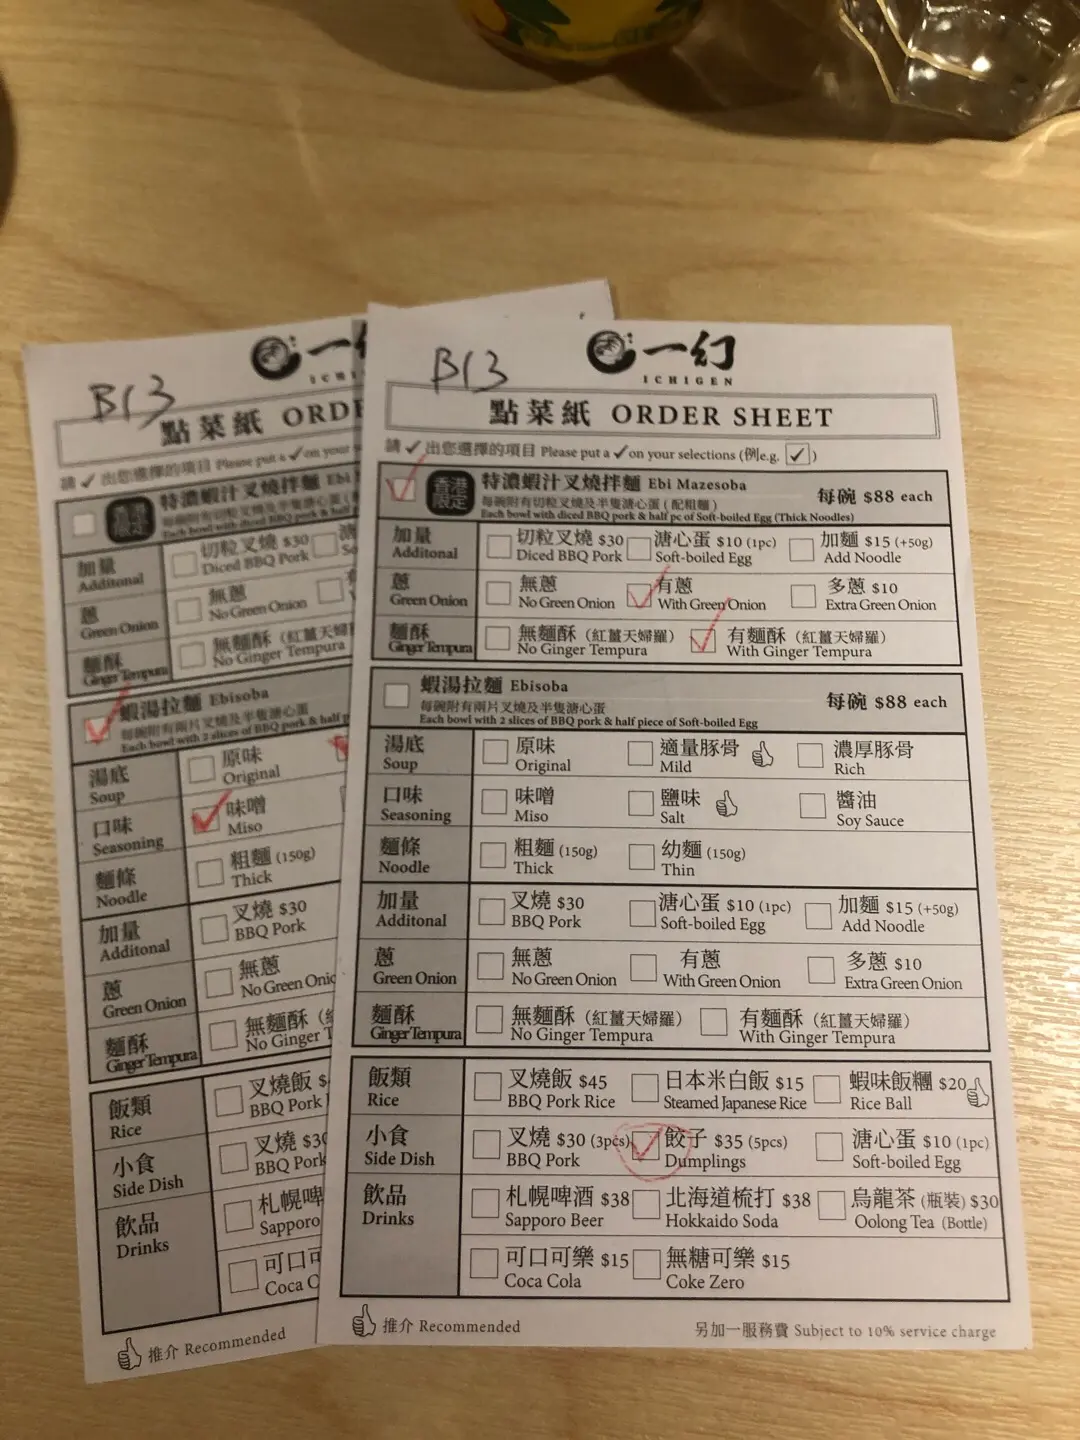 B13
一
ICHI
點菜紙 ORDE
請 ✓ 出您選擇的項目 Please put a ✓ on your s
特濃蝦汁叉燒拌麵 Ebi
每碗附有切粒叉燒及半隻溏心蛋
Each bowl with diced BBQ pork & half p
加量
Additonal
切粒叉燒 $30
Diced BBQ Pork
So
蔥
Green Onion
無蔥
No Green Onion
麵酥
Ginger Tempura
無麵酥（紅薑天婦羅
No Ginger Tempura
蝦湯拉麵 Ebisoba
每碗附有兩片叉燒及半隻溏心蛋
Each bowl with 2 slices of BBQ pork & half p
湯底
Soup
原味
Original
口味
Seasoning
味噌
Miso
麵條
Noodle
粗麵 (150g)
Thick
加量
Additonal
叉燒 $30
BBQ Pork
蔥
Green Onion
無蔥
No Green Onio
麵酥
Ginger Tempura
無麵酥
No Ginger T
飯類
Rice
叉燒飯 $
BBQ Pork
小食
Side Dish
叉燒 $30
BBQ Pork
飲品
Drinks
札幌啤
Sapporo
可口可
Coca C
推介 Recommended
B13
一幻
ICHIGEN
點菜紙 ORDER SHEET
請 ✓ 出您選擇的項目 Please put a ✓ on your selections (例e.g. ✓)
香港
限定
特濃蝦汁叉燒拌麵 Ebi Mazesoba 每碗 $88 each
每碗附有切粒叉燒及半隻溏心蛋 ( 配粗麵 )
Each bowl with diced BBQ pork & half pc of Soft-boiled Egg (Thick Noodles)
加量 切粒叉燒 $30 溏心蛋 $10 (1pc) 加麵 $15 (+50g)
Additonal Diced BBQ Pork Soft-boiled Egg Add Noodle
蔥 無蔥 有蔥 多蔥 $10
Green Onion No Green Onion With Green Onion Extra Green Onion
麵酥 無麵酥（紅薑天婦羅） 有麵酥（紅薑天婦羅）
Ginger Tempura No Ginger Tempura With Ginger Tempura
蝦湯拉麵 Ebisoba 每碗 $88 each
每碗附有兩片叉燒及半隻溏心蛋
Each bowl with 2 slices of BBQ pork & half piece of Soft-boiled Egg
湯底 原味 適量豚骨 濃厚豚骨
Soup Original Mild Rich
口味 味噌 鹽味 醬油
Seasoning Miso Salt Soy Sauce
麵條 粗麵 (150g) 幼麵 (150g)
Noodle Thick Thin
加量 叉燒 $30 溏心蛋 $10 (1pc) 加麵 $15 (+50g)
Additonal BBQ Pork Soft-boiled Egg Add Noodle
蔥 無蔥 有蔥 多蔥 $10
Green Onion No Green Onion With Green Onion Extra Green Onion
麵酥 無麵酥（紅薑天婦羅） 有麵酥（紅薑天婦羅）
Ginger Tempura No Ginger Tempura With Ginger Tempura
飯類 叉燒飯 $45 日本米白飯 $15 蝦味飯糰 $20
Rice BBQ Pork Rice Steamed Japanese Rice Rice Ball
小食 叉燒 $30 (3pcs) 餃子 $35 (5pcs) 溏心蛋 $10 (1pc)
Side Dish BBQ Pork Dumplings Soft-boiled Egg
飲品 札幌啤酒 $38 北海道梳打 $38 烏龍茶 (瓶裝) $30
Drinks Sapporo Beer Hokkaido Soda Oolong Tea (Bottle)
可口可樂 $15 無糖可樂 $15
Coca Cola Coke Zero
推介 Recommended 另加一服務費 Subject to 10% service charge